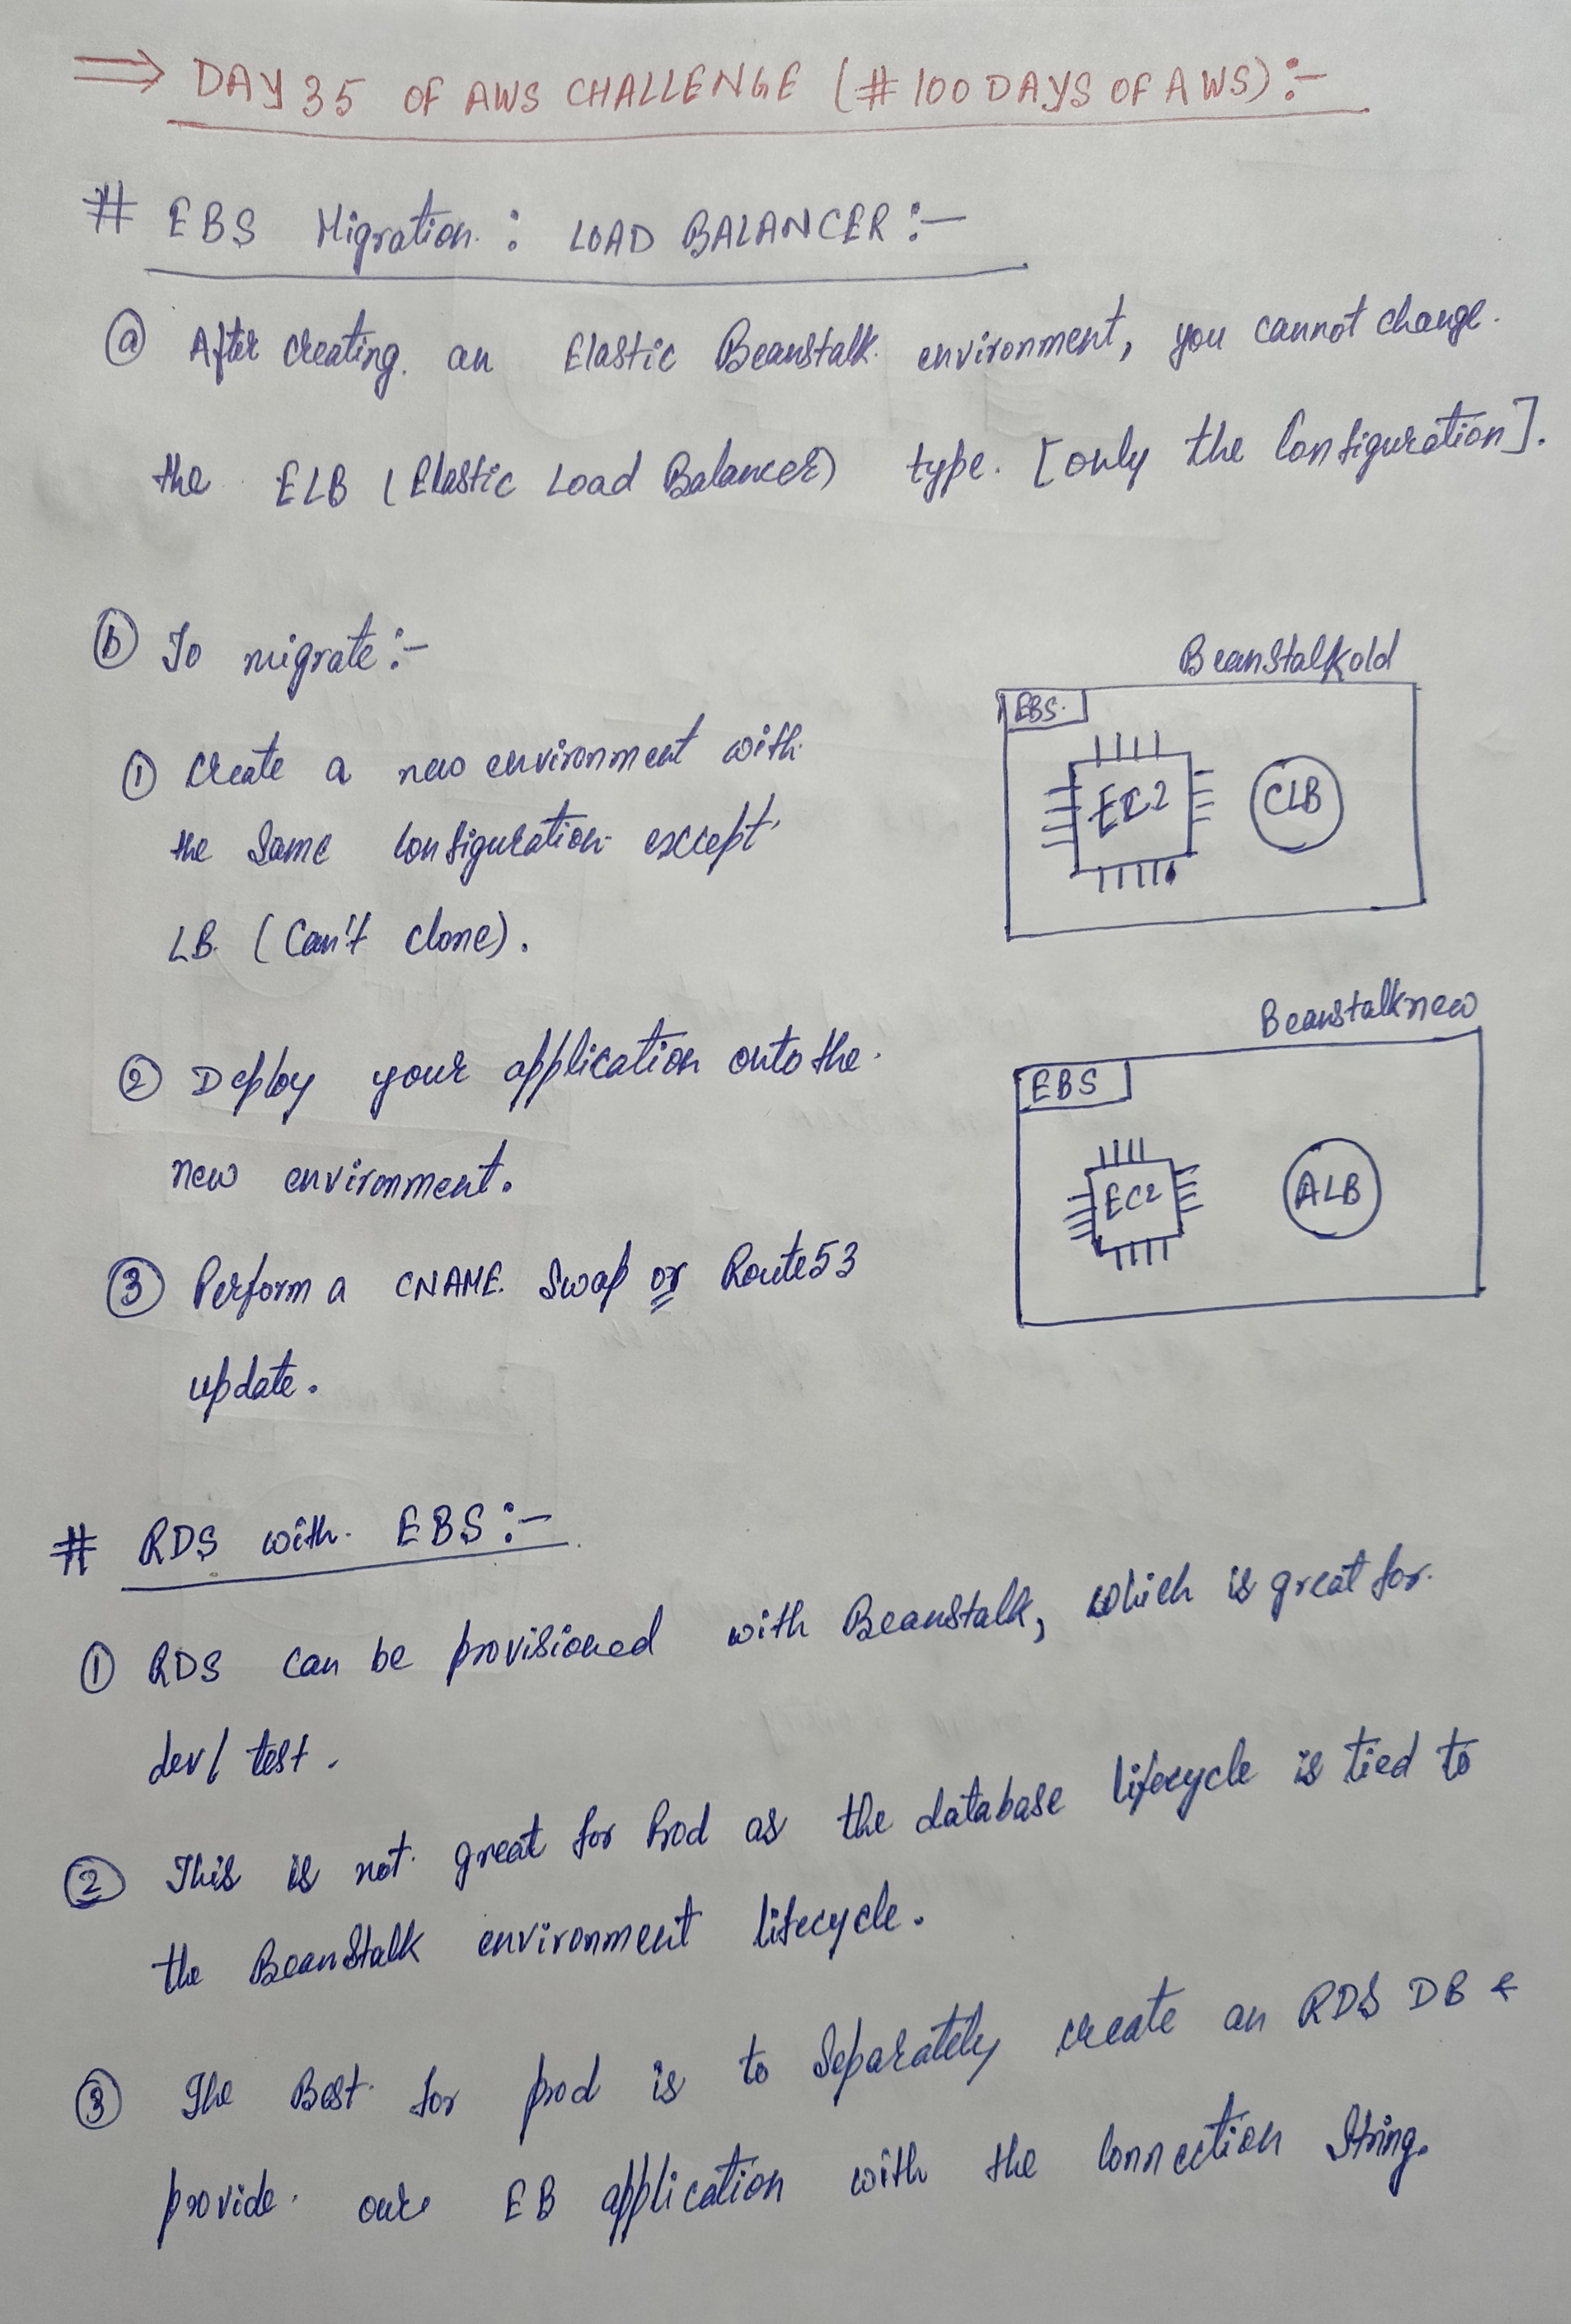 ⇒ DAY 35 OF AWS CHALLENGE (#100DAYS OF AWS):-
# EBS Migration : LOAD BALANCER :-
ⓐ After creating an Elastic Beanstalk environment, you cannot change
the ELB (Elastic Load Balancer) type. [only the Configuration].
ⓑ To migrate:-
① Create a new environment with
the same configuration except
LB (Can't clone).
② Deploy your application onto the
new environment.
③ Perform a CNAME Swap or Route53
update.
Beanstalkold
EBS
EC2
CLB
Beanstalknew
EBS
EC2
ALB
# RDS with EBS:-
① RDS can be provisioned with Beanstalk, which is great for
dev/ test.
② This is not great for Prod as the database lifecycle is tied to
the BeanStalk environment lifecycle.
③ The Best for prod is to Separately create an RDS DB &
provide our EB application with the Connection String.